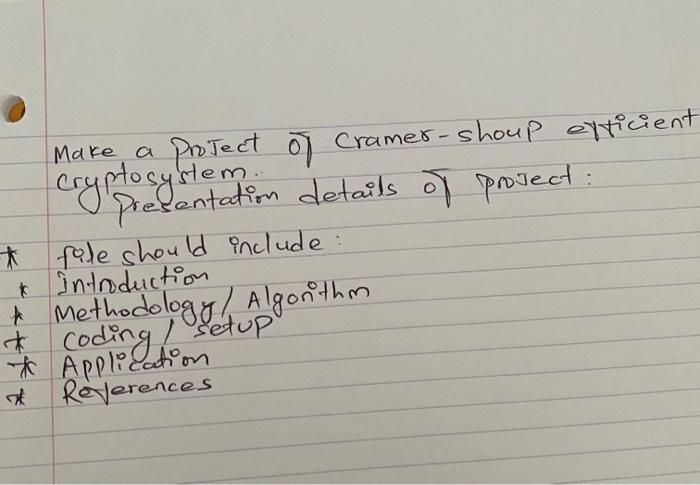 Make a Project of Cramer-shoup efficient
cryptosystem.
Presentation details of project:
* file should include:
* Introduction
* Methodology / Algorithm
* Coding / setup
* Application
* References